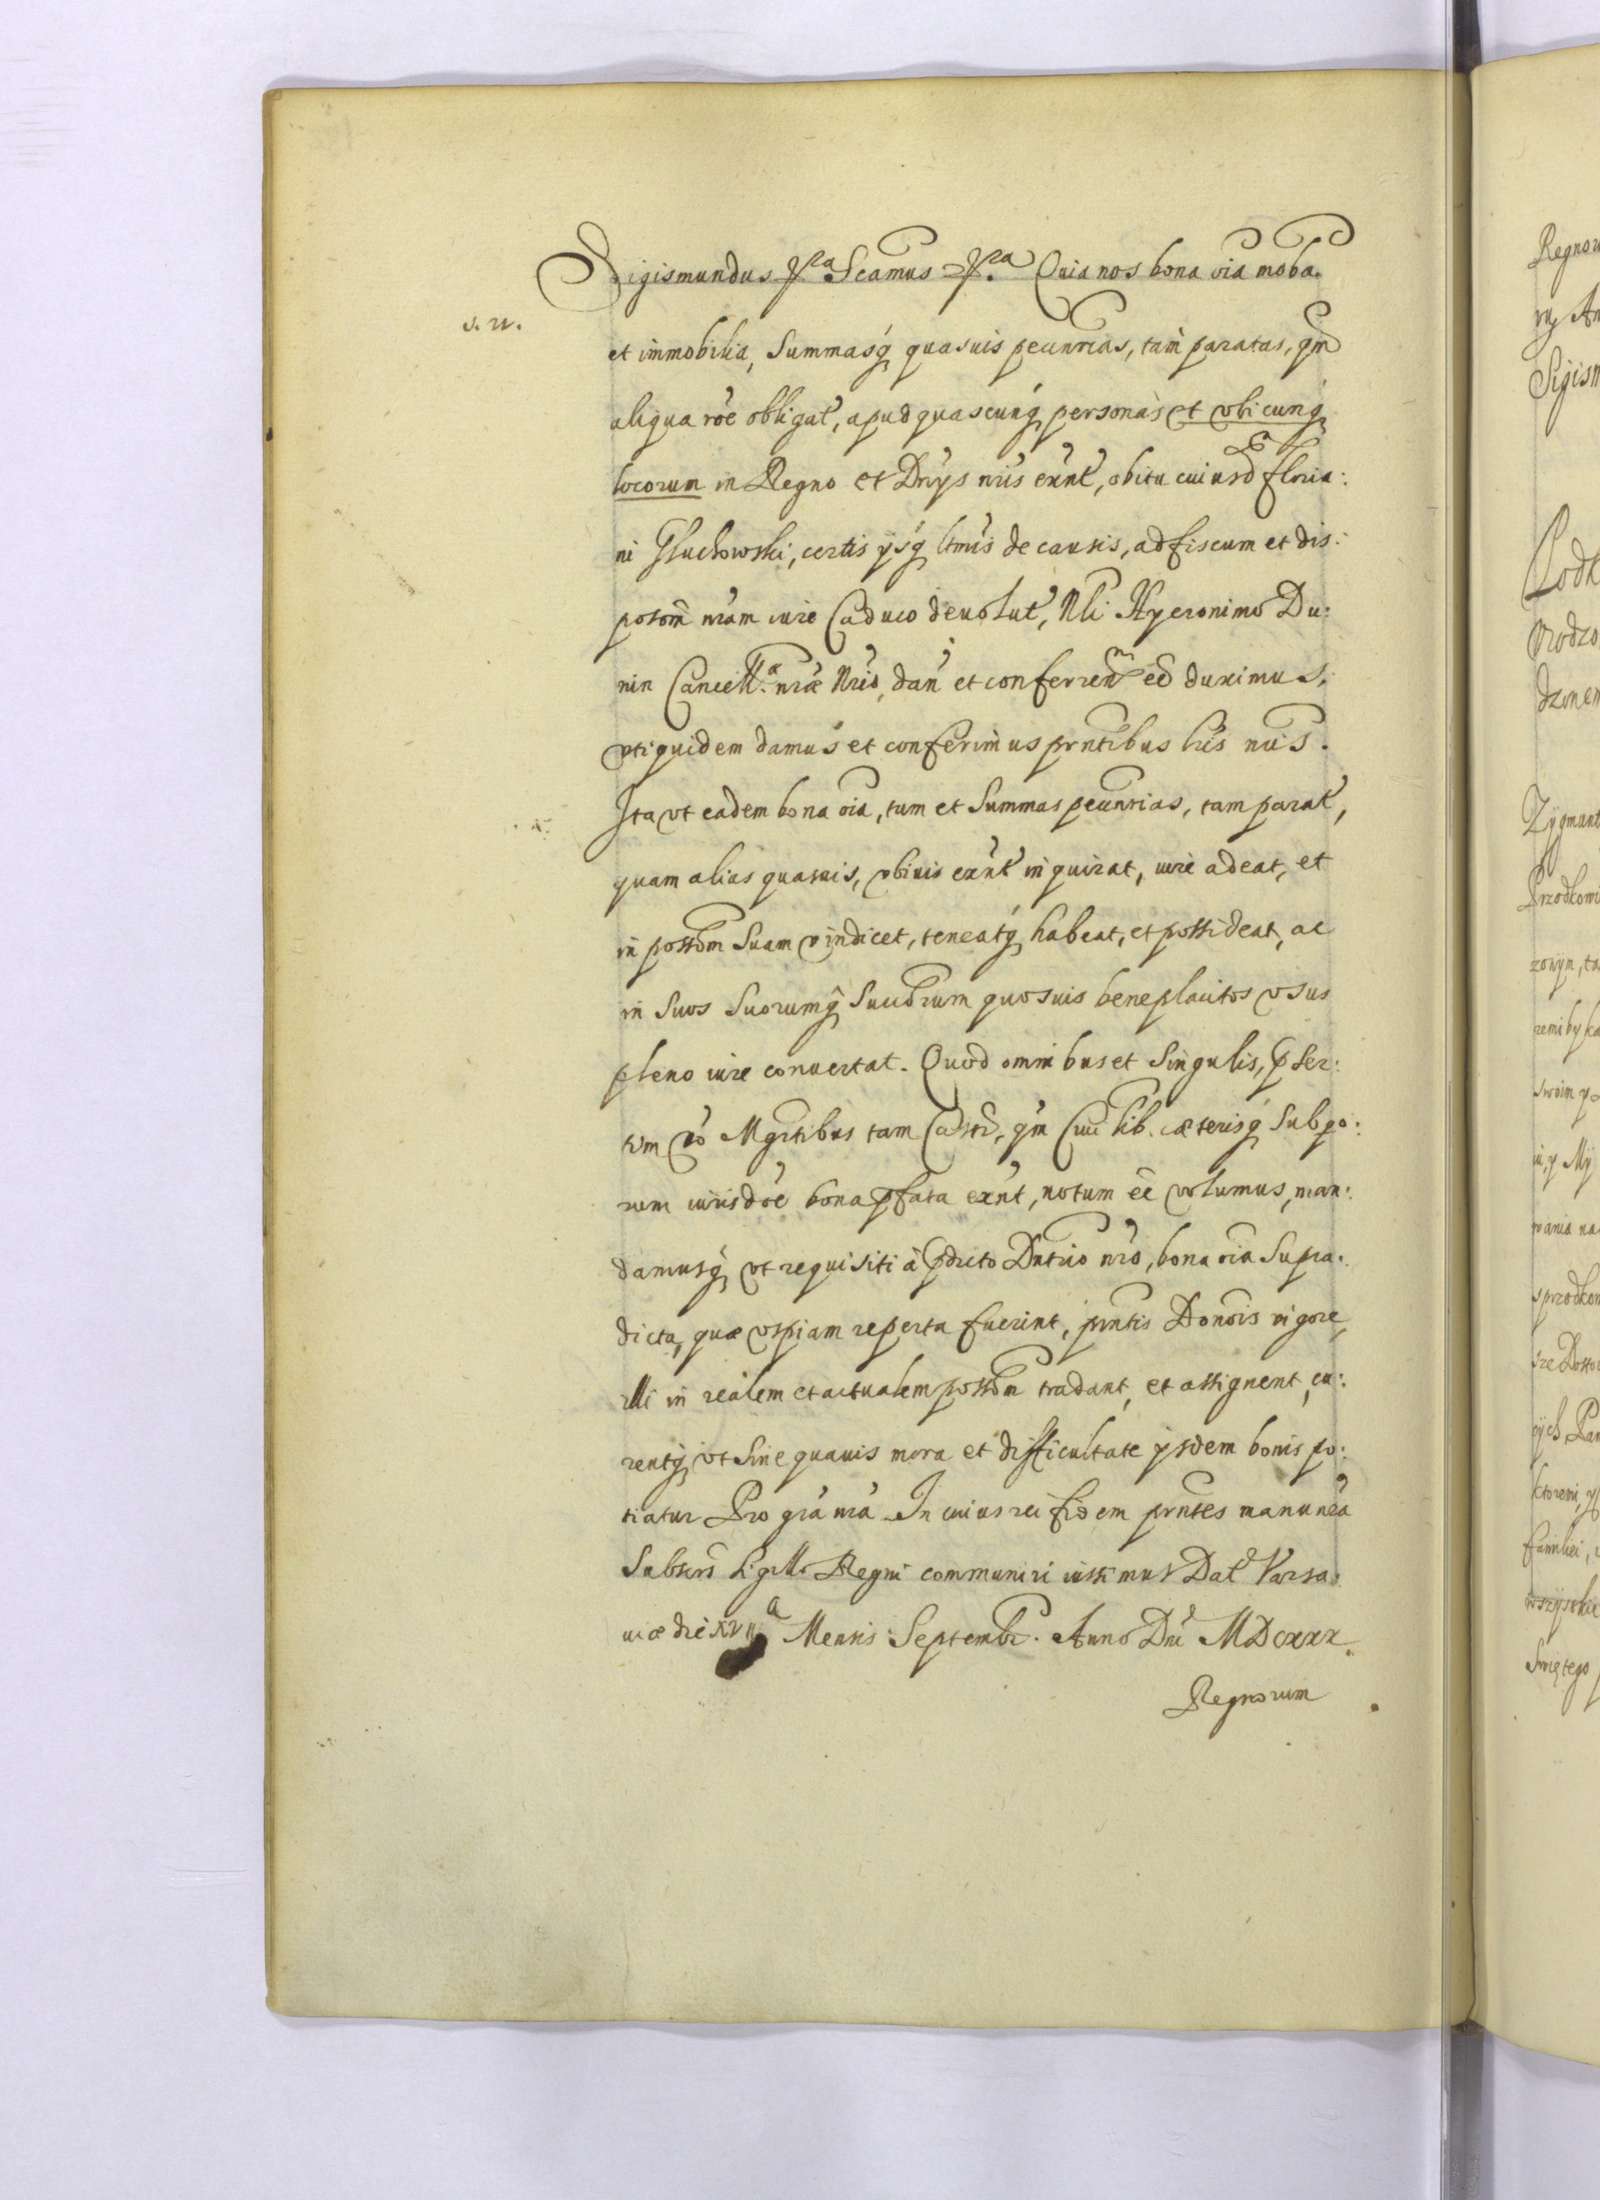 Sigismundus &ra Scamus &ra Quia nos bona oia moba.
s. n.
et immobilia, Summasq quasuis pecunrias, tam paratas, qm
aliqua roe obligat, apud quascunq personas et vbicunq
locorum in Regno et Dnys nris exnt, obitu cuiusd Floria:
ni Gluchowski, certis ysq ltmis de causis, ad fiscum et dis:
posom nram iure Caduco deuolut, Nli Hyeronimo Du:
nin Cancell.æ nræ Nrio, dan et conferren eē duximus,
vti quidem damus et conferimus prntibus lris nris.
Ita vt eadem bona oia, tum et Summas pecunrias, tam parat,
quam alias quasuis, vbiuis exnt inquirat, iure adeat, et
in possom Suam vindicet, teneatq habeat, et possideat, ac
in Suos Suorumq Succorum quosuis beneplacitos vsus
pleno iure conuertat. Quod omnibus et Singulis, pser:
tim vo Mgrtibus tam Castr, qm Ciui lib. cæterisq Sub quo:
rum iurisdoe bona pfata exnt, notum eē volumus, man:
damusq vt requisiti à pdicto Dntrio nro, bona oia Supra:
dicta, quæ vspiam reperta fuerint, prntis Donois vigore,
illi in realem et actualem possom tradant, et assignent, cu:
rentq vt Sine quauis mora et difficultate ysdem bonis po:
tiatur Pro gra nra In cuius rei fidem prntes manu nra
Subscrs Sigillo Regni communiri iussimus Dat Varsa:
uiæ die XVIIa Mensis Septembr. Anno Dni MDCXXX.
Regnorum